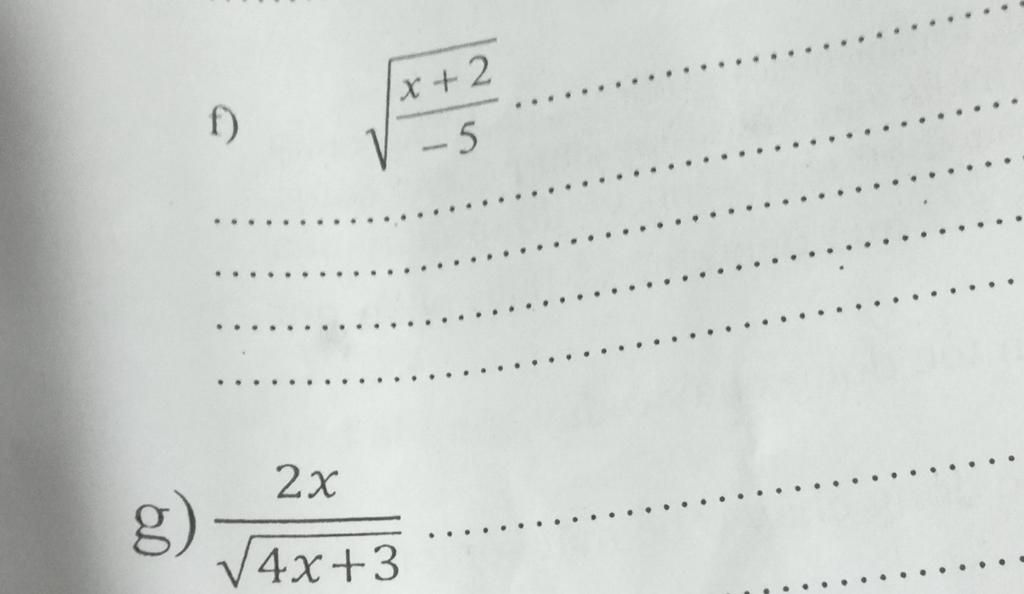 f) √((x + 2)/(− 5)) ..............................
..............................
..............................
..............................
..............................
g) 2x/√(4x+3) ..............................